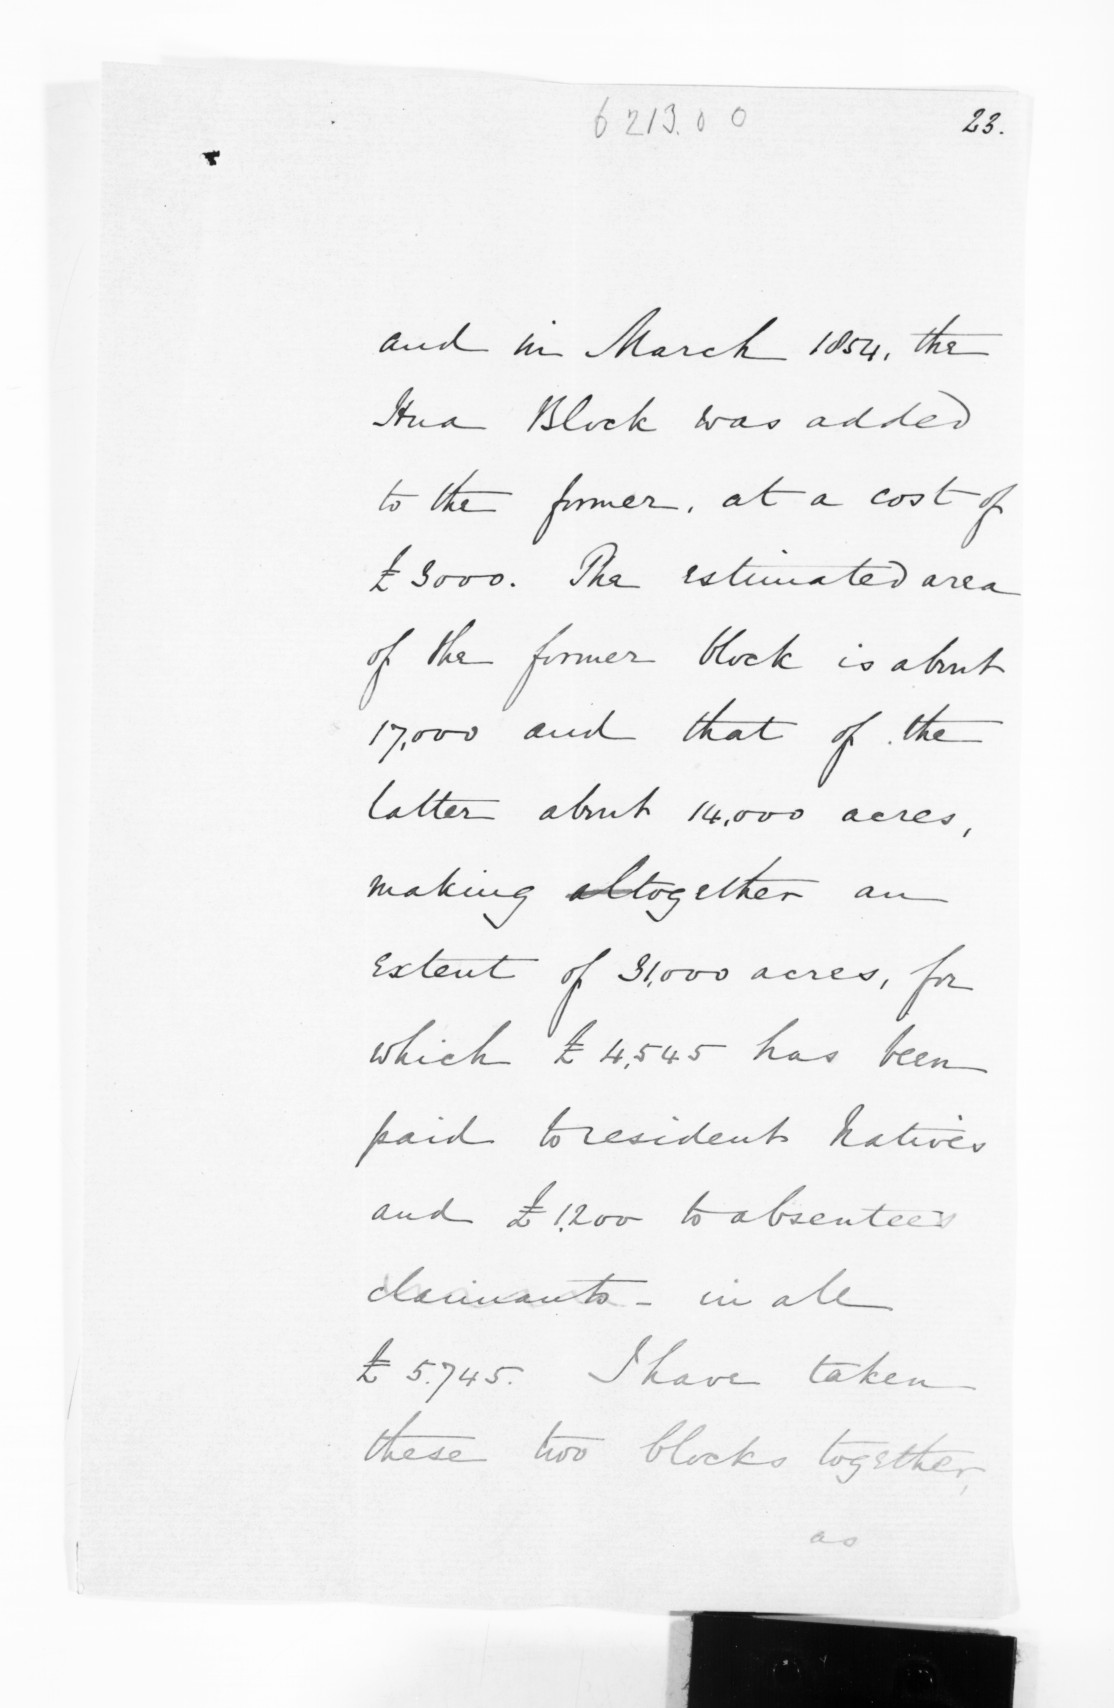 6213.00
23.
and in March 1854, the
Hua Block was added
to the former, at a cost of
£3000. The estimated area
of the former block is about
17,000 and that of the
latter about 14,000 acres,
making altogether an
extent of 31,000 acres, for
which £4,545 has been
paid to resident Natives
and £1,200 to absentees
claimants - in all
£5.745. I have taken
these two blocks together,
as